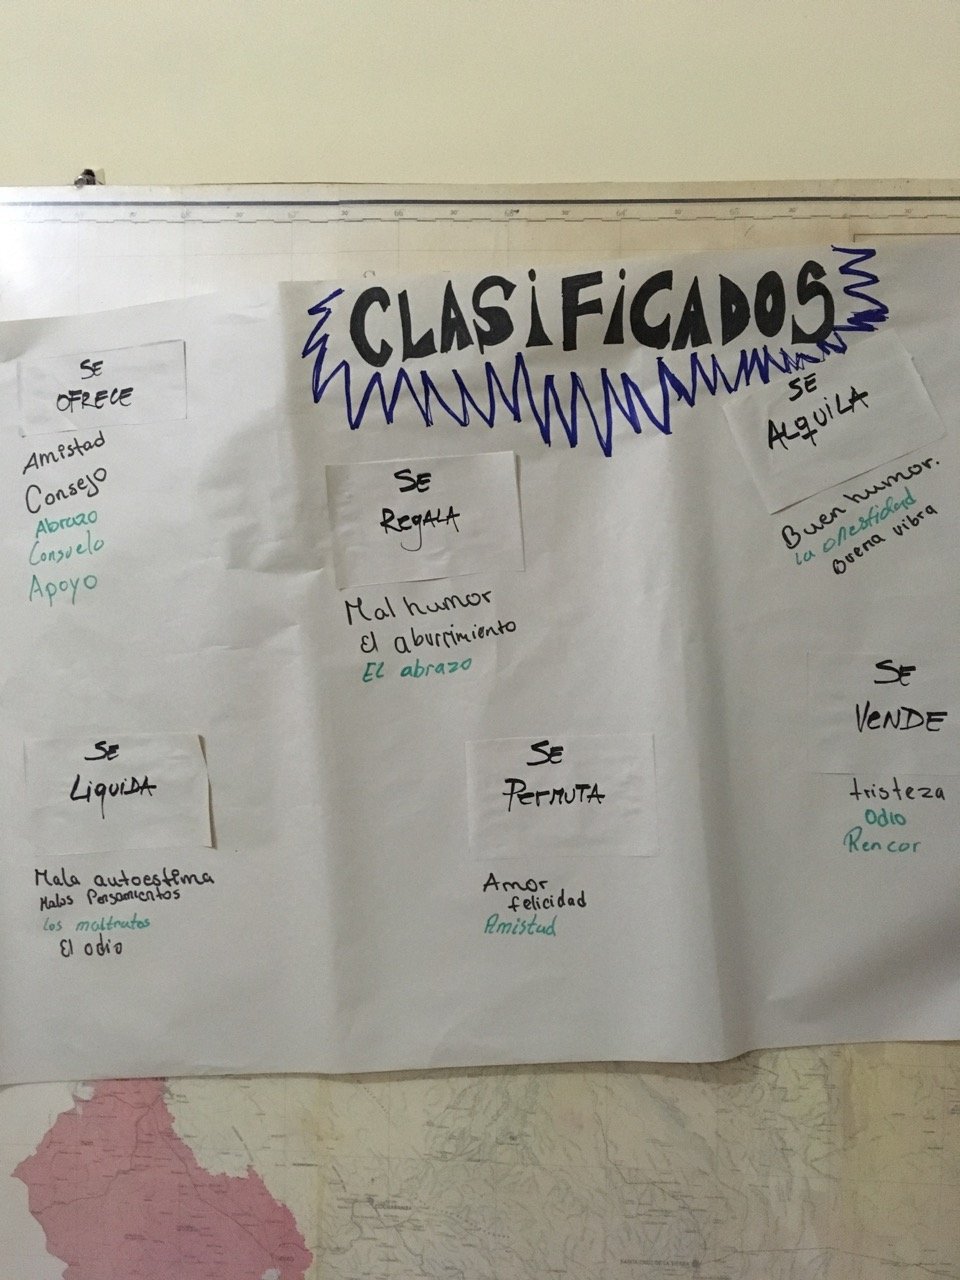 CLASiFiCADOS
SE
OFRECE
Amistad
Consejo
Abrazo
Consuelo
Apoyo
SE
REgALA
Mal humor
El aburrimiento
El abrazo
SE
ALquiLA
Buen humor.
la onestidad
Buena vibra
SE
LiquiDA
Mala autoestima
Malos Pensamientos
los maltratos
El odio
SE
PerMUTA
Amor
felicidad
Amistad
SE
VeNDE
tristeza
Odio
Rencor